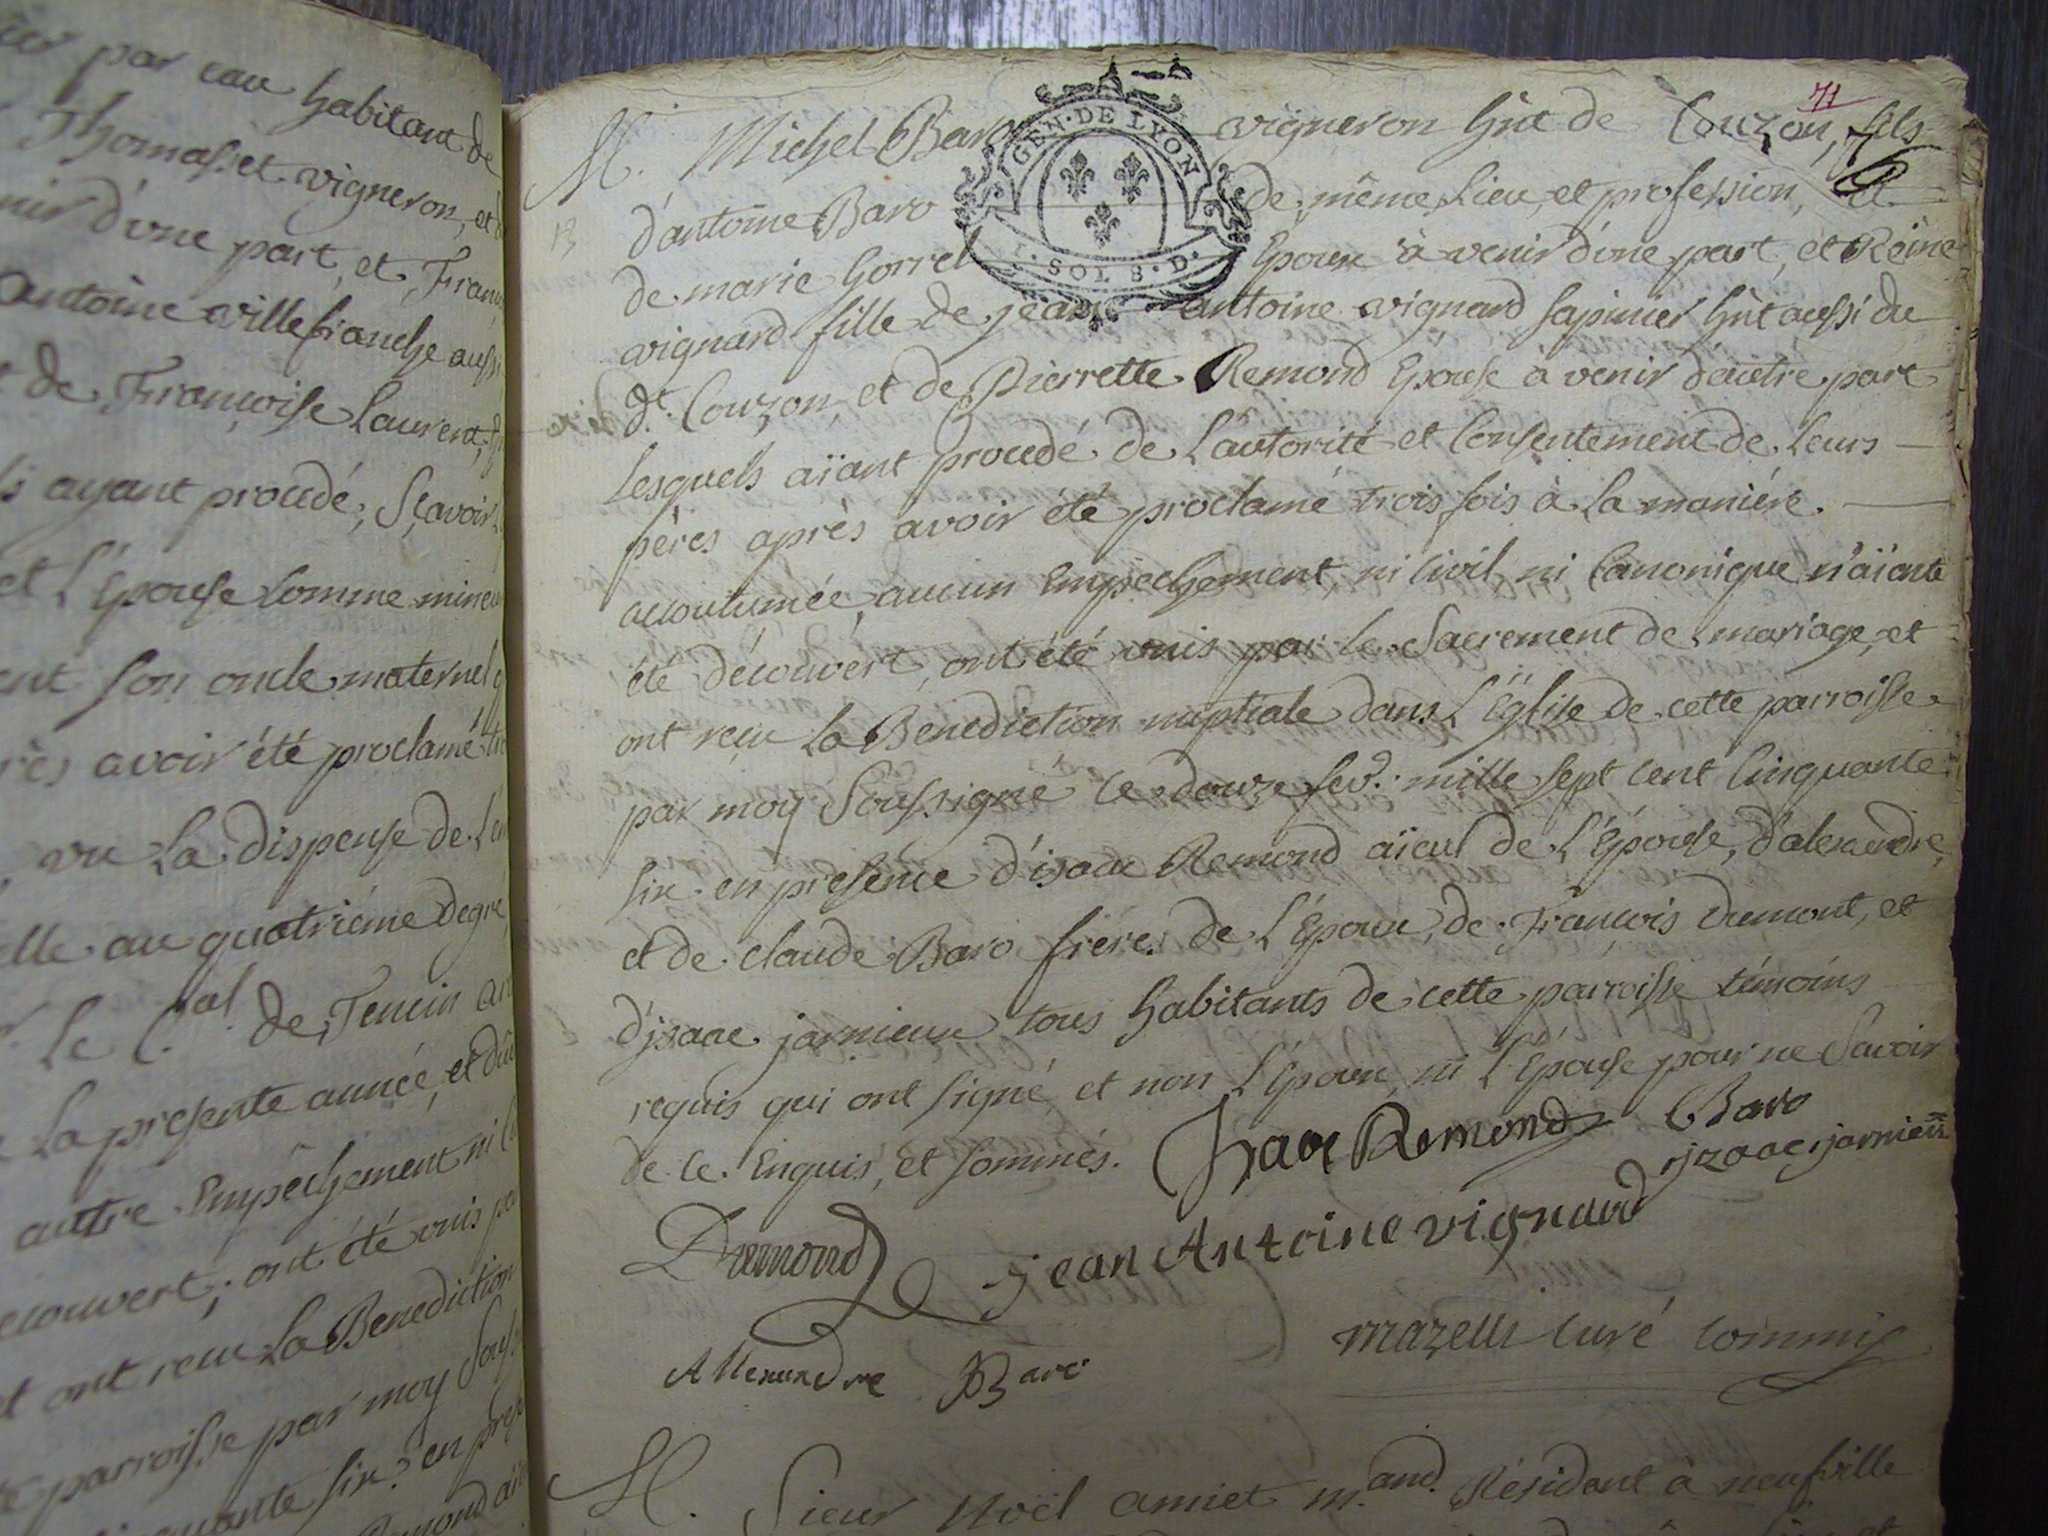 par eau habitant de
Thomasset vigneron, et
d'une part, et, Fran
antoine villefranche aussi
de Françoise Laurent,
ayant procedé; Sçavoir
et L'Epouse comme mineu
son oncle maternel
avoir été proclamé tro
vu La dispense de
au quatriéme degré
Le C.al de Tencin ar
La presente année, et
autre Empêchement ni
ecouvert; ont été unis pa
ont recu La Benediction
parroisse par moy Souss
six en prese
71
M. Michel Baro vigneron hnt de Couzon, fils
d'antoine Baro de même Lieu et profession, et
de marie Gorrel Epoux à venir d'une part, et Reine
vignard fille de jean antoine vignard sapinier hnt aussi du
dt. Couzon, et de Pierrette Remond Epouse à venir d'autre part
Lesquels aïant procedé de L'autorité et Consentement de Leurs
pères après avoir été proclamé trois fois à La maniére
accoutumée, aucun Empechement, ni Civil ni Canonique n'aïant
été découvert, ont été unis par le Sacrement de mariage, et
ont reçu La Benediction nuptiale dans L'Église de cette parroisse
par moy Soussigné le douze fev.r mille sept cent Cinquante
six en presence d'isaac Remond aïeul de L'Épouse, d'alexandre
et de claude Baro frères de L'Epoux, de François Dumont, et
d'jsaac jarnieux tous habitants de cette parroisse témoins
requis qui ont signé et non L'Epoux, ni L'Épouse pour ne Savoir
de ce Enquis, et sommés. Isaac Remond Baro
ijzaac jarnieux
Dumond jean Antoine vignard
Allexandre Baro mazelli curé commis
M. Sieur Noël amiet m.and Résidant à neufville
GEN·DE LYON
1·SOL 8·D·